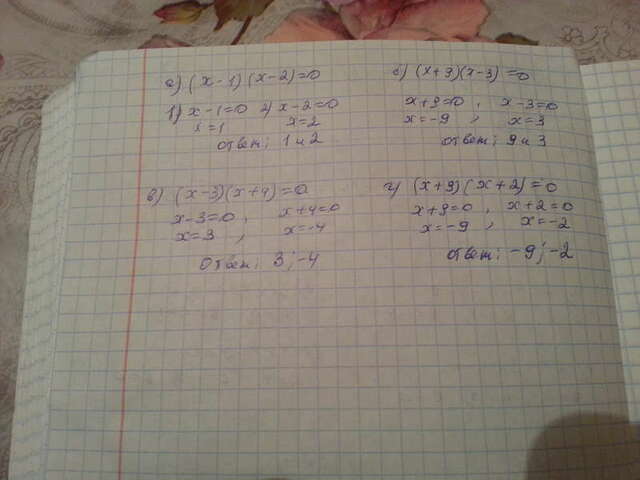 а) (x-1)(x-2)=0
1) x-1=0 2) x-2=0
x=1 x=2
ответ; 1 и 2
б) (x+9)(x-3)=0
x+9=0, x-3=0
x=-9, x=3
ответ; 9 и 3
в) (x-3)(x+4)=0
x-3=0, x+4=0
x=3, x=-4
ответ; 3;-4
г) (x+9)(x+2)=0
x+9=0, x+2=0
x=-9, x=-2
ответ; -9;-2